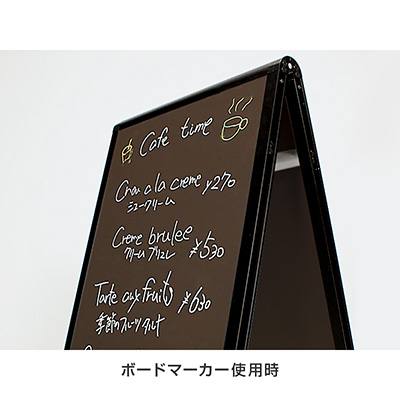 Cafe time
Chou a la creme ¥270
シュークリーム
Creme brulee
クリームブリュレ ¥530
Tarte aux fruits ¥630
季節のフルーツタルト
ボードマーカー使用時